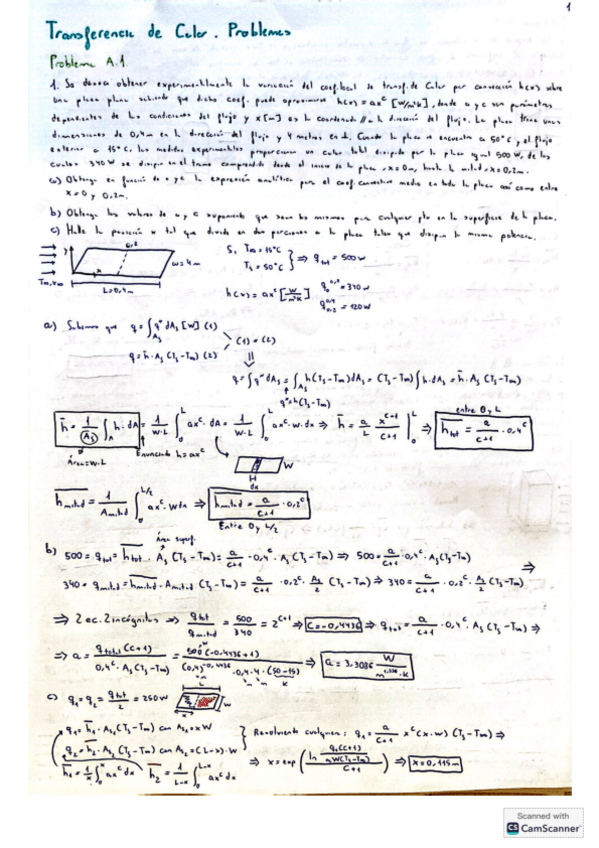 1
Transferencia de Calor. Problemas
Problema A.1.
1. Se desea obtener experimentalmente la variación del coef. local de transf. de Calor por convección h(x) sobre
una placa plana sabiendo que dicho coef. puede aproximarse h(x) = ax^c [W/m²K], donde a y c son parámetros
dependientes de las condiciones del flujo y x[m] es la coordenada // a la dirección del flujo. La placa tiene unas
dimensiones de 0,4m en la dirección del flujo y 4 metros en ⊥. Cuando la placa se encuentra a 50°C y el flujo
exterior a 15°C, las medidas experimentales proporcionan un calor total disipado por la placa igual 500W, de los
cuales 340W se disipan en el tramo comprendido desde el inicio de la placa, x=0m, hasta la mitad, x=0,2m.
a) Obtenga en función de a y c la expresión analítica para el coef. convectivo medio en toda la placa así como entre
x=0 y 0,2m.
b) Obtenga los valores de a y c suponiendo que sean los mismos para cualquier pto en la superficie de la placa.
c) Halle la posición x tal que divida en dos porciones a la placa tales que disipen la misma potencia.
0,2
y
x
w=4m
L=0,4m
T∞,V∞
Si T∞=15°C
Ts=50°C
⇒ q tot = 500W
h(x) = ax^c [W/m²K]
a) Sabemos que q = ∫As q'' dAs [W] (1)
q = h̄·As (Ts-T∞) (2)
(1) = (2)
q = ∫q'' dAs = ∫As h(Ts-T∞)dAs = (Ts-T∞)∫h·dAs = h̄·As (Ts-T∞)
q''=h(Ts-T∞)
h̄ = 1/As ∫A h·dA = 1/W·L ∫0^L ax^c·dA = 1/W·L ∫0^L ax^c·w·dx ⇒ h̄ = a/L x^(c+1)/(c+1) |0^L ⇒ h̄tot = a/(c+1) ·0,4^c
entre 0 y L
Área=W·L
Enunciado h=ax^c
W
dx
h̄mitad = 1/Amitad ∫0^(L/2) ax^c·wdx ⇒ h̄mitad = a/(c+1) ·0,2^c
Entre 0 y L/2
Área superf.
b) 500 = q tot = h̄tot · As (Ts-T∞) = a/(c+1) ·0,4^c · As (Ts-T∞) ⇒ 500 = a/(c+1) ·0,4^c · As (Ts-T∞) ⇒
340 = q mitad = h̄mitad · Amitad (Ts-T∞) = a/(c+1) ·0,2^c · As/2 (Ts-T∞) ⇒ 340 = a/(c+1) ·0,2^c · As/2 (Ts-T∞)
⇒ 2 ec. 2 incógnitas ⇒ q tot/q mitad = 500/340 = 2^(c+1) ⇒ c=-0,4436 ⇒ q tot = a/(c+1) ·0,4^c · As (Ts-T∞) ⇒
⇒ a = q total (c+1) / 0,4^c · As (Ts-T∞) = 500 (-0,4436+1) / (0,4)^-0,4436 ·0,4·4 (50-15) ⇒
c) q1 = q2 = q tot/2 = 250W
q1 = h̄1 · As1 (Ts-T∞) con As1=xW
q2 = h̄2 · As2 (Ts-T∞) con As2=(L-x)·W
Resolviendo cualquiera: q1 = a/(c+1) x^c (x·w) (Ts-T∞) ⇒
⇒ x = exp ( ln q1(c+1)/aW(Ts-T∞) / c+1 ) ⇒ x=0,115m
h̄1 = 1/x ∫0^x ax^c dx
Scanned with
CS CamScanner